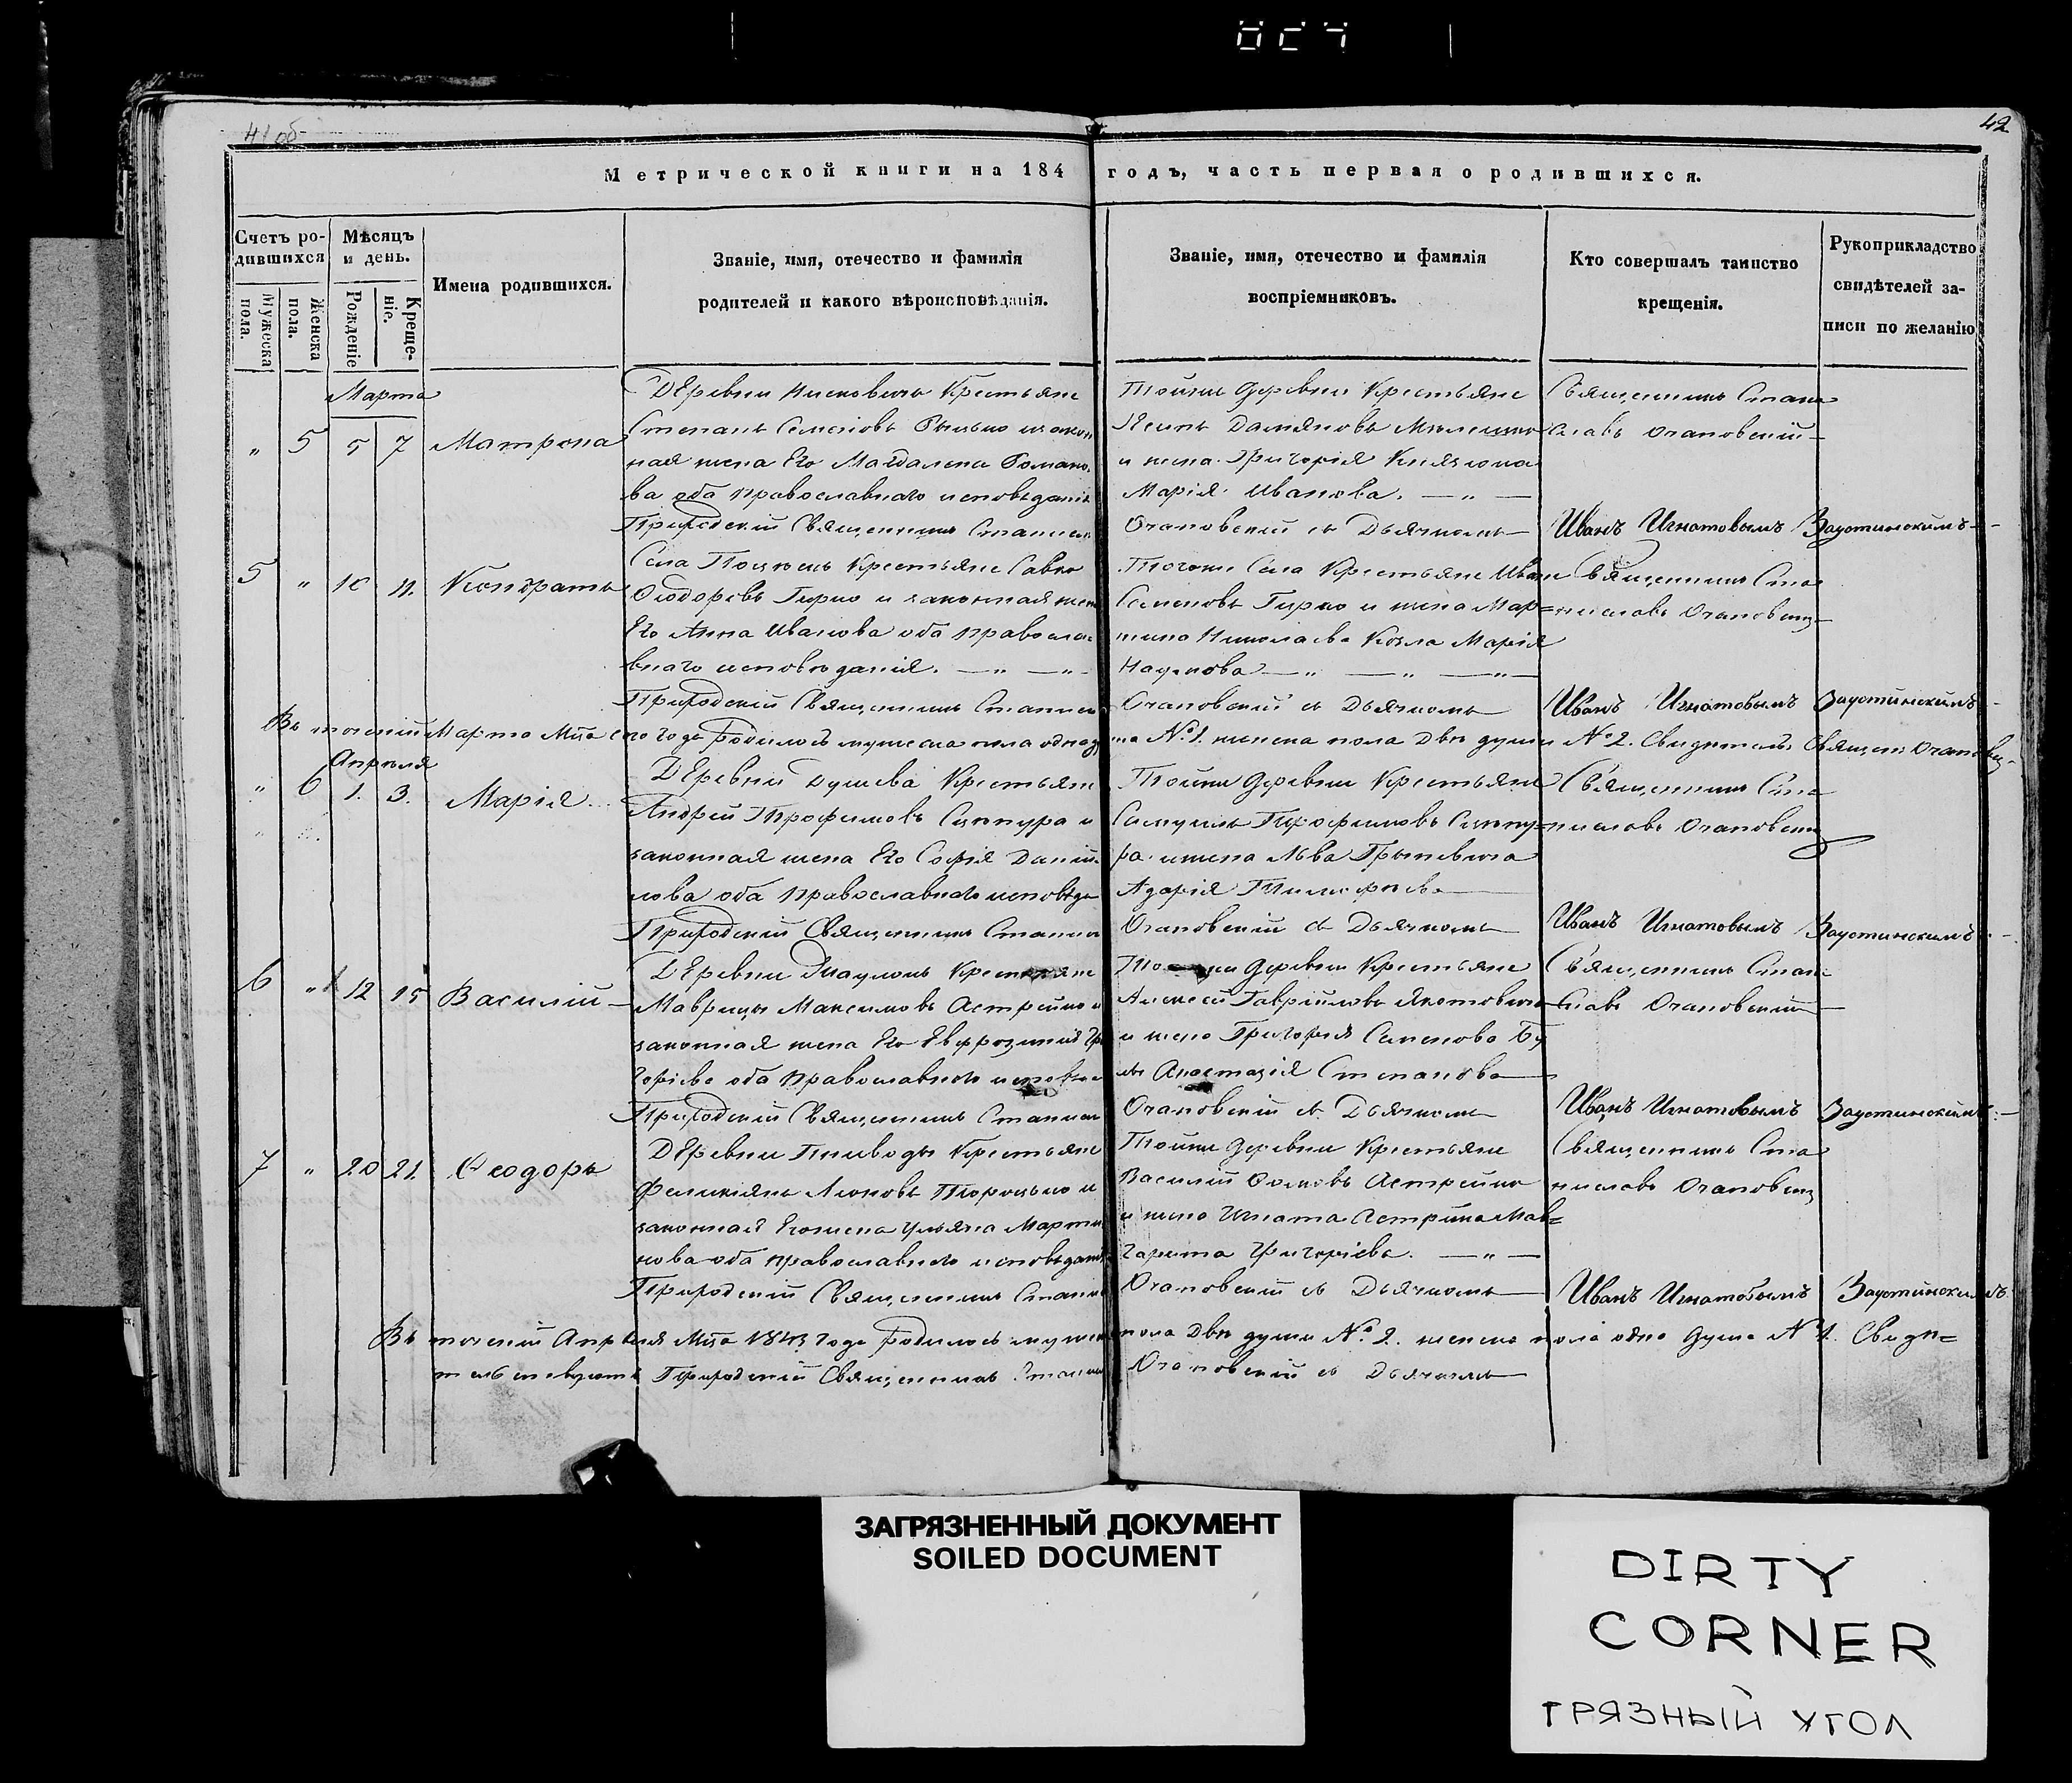 41 об
42
Метрической книги на 184 годъ, часть первая о родившихся.
Счетъ родившихся
Мужеска пола.
Женска пола.
Мѣсяцъ и день.
Рожденіе
Крещеніе.
Имена родившихся.
Званіе, имя, отечество и фамилія
родителей и какого вѣроисповѣданія.
Званіе, имя, отечество и фамилія
воспріемниковъ.
Кто совершалъ таинство
крещенія.
Рукоприкладство
свидѣтелей за-
писи по желанію
Марта
„ 5 5 7 Матрона
Деревни Крестьяне
Степанъ Семеновъ
ная жена Его Магдалена Романо
ва оба православнаго исповѣданія
Тойже деревни Крестьяне
Якимъ Дамяновъ
и жена Григорія
Марія Иванова. — „ —
Священникъ Стани
славъ Огановскій
Приходскій Священникъ Станисл Огановскій съ Дьячкомъ Иванъ Игнатовымъ Заустинскимъ
5 „ 10 11. Кондратъ
Села Крестьяне Савка
Ѳеодоровъ Гирко и законная жена
Его Анна Иванова оба правосла
внаго исповѣданія. — „ — „
Тогоже Села Крестьяне Иванъ
Семеновъ Гирко и жена Мар=
тина Николаева Козла Марія
Наумова — „ — „ — „ —
Священникъ Ста
ниславъ Огановскій
Приходскій Священникъ Станисл Огановскій съ Дьячкомъ Иванъ Игнатовымъ Заустинскимъ
Въ теченій Марта Мца сего года родилось мужеска пола одна душа № 1. женска пола двѣ души № 2. Свидѣтель Священ: Огановскій
Апрѣля
„ 6 1. 3. Марія
Деревни Душева Крестьяне
Андрей Трофимовъ и
законная жена Его Софія Даній
лова оба православнаго исповѣда
Тойже деревни Крестьяне
Самуилъ Трофимовъ
ра и жена Льва
Агафія Тимофеева
Священникъ Ста
ниславъ Огановскій
Приходскій Священникъ Станисл Огановскій съ Дьячкомъ Иванъ Игнатовымъ Заустинскимъ
6 „ 12 15 Василій
Деревни Крестьяне
Маврицы Максимовъ Астрейко и
законная жена Его Евфрозинія Гри
горіева оба православнаго исповѣд
Тойже деревни Крестьяне
Алексей Гавриловъ
и жена Григорія Семенова
Анастазія Степанова
Священникъ Стани
славъ Огановскій
Приходскій Священникъ Станисл Огановскій съ Дьячкомъ Иванъ Игнатовымъ Заустинскимъ
7 „ 20 21. Ѳеодоръ
Деревни Гниводы Крестьяне
Фелиціянъ и
законная Его жена Ульяна Марти
нова оба православнаго исповѣдані
Тойже деревни Крестьяне
Василій Астрейко
и жена Игната Астрейка Мар=
гарита Григоріева. — „ —
Священникъ Ста
ниславъ Огановскій
Приходскій Священникъ Станисл Огановскій съ Дьячкомъ Иванъ Игнатовымъ Заустинскимъ
Въ теченій Апрѣля Мца 1843 года родилось мужеска пола двѣ души № 2. женска пола одна душа № 1. Свидѣ=
тельствуютъ Приходскій Священникъ Станисл Огановскій съ Дьячкомъ
ЗАГРЯЗНЕННЫЙ ДОКУМЕНТ
SOILED DOCUMENT
DIRTY
CORNER
ГРЯЗНЫЙ УГОЛ